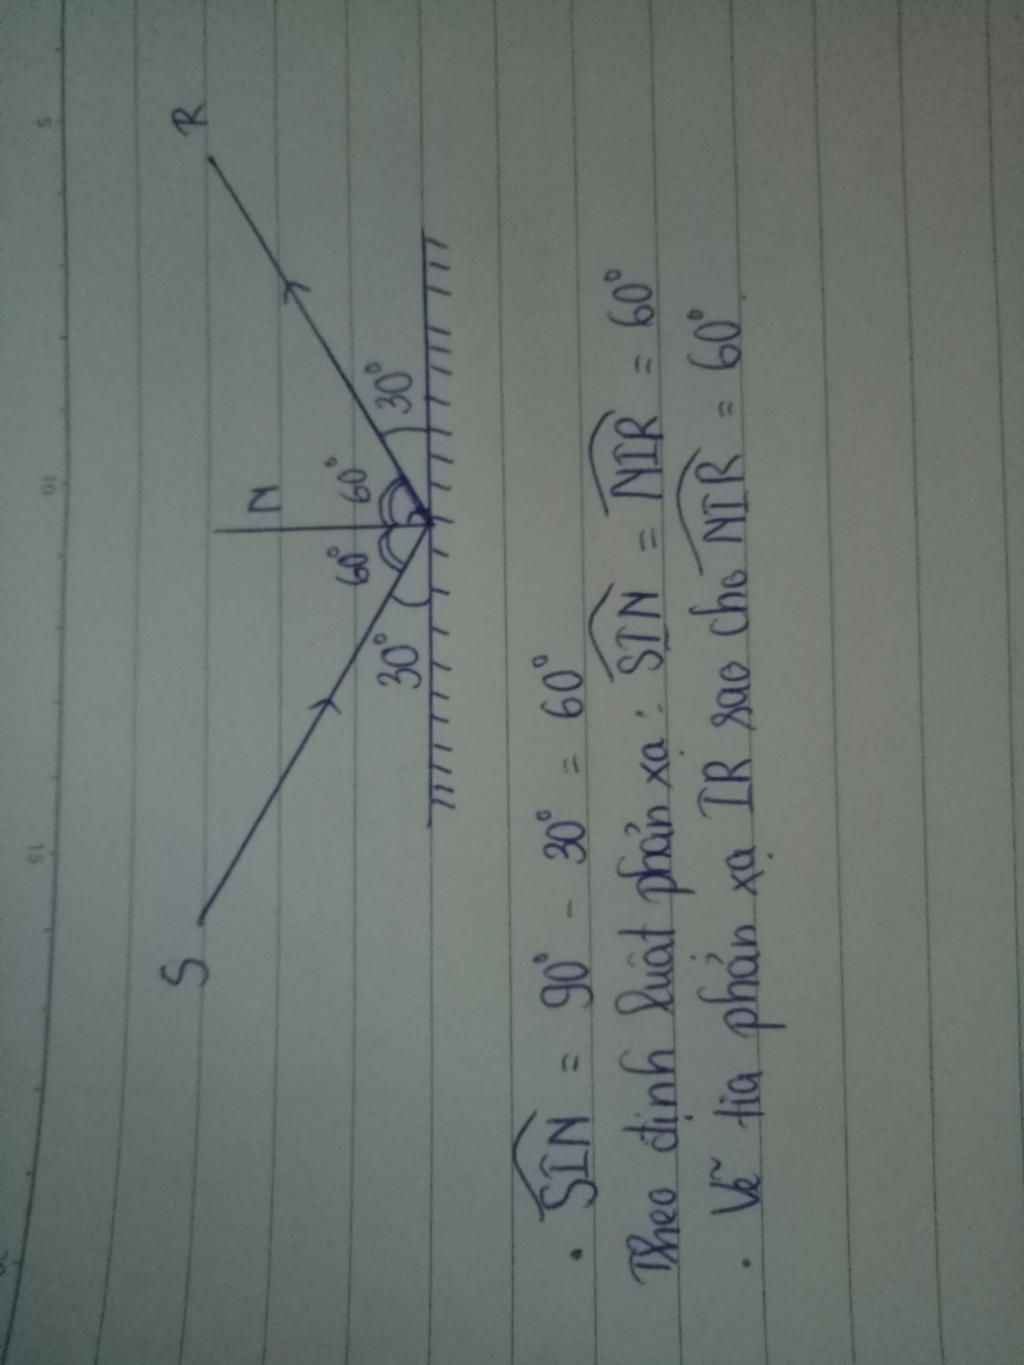 S
R
N
60° 60°
30° 30°
. SIN = 90° - 30° = 60°
Theo định luật phản xạ: SIN = NIR = 60°
. Vẽ tia phản xạ IR sao cho NIR = 60°
5
10
15